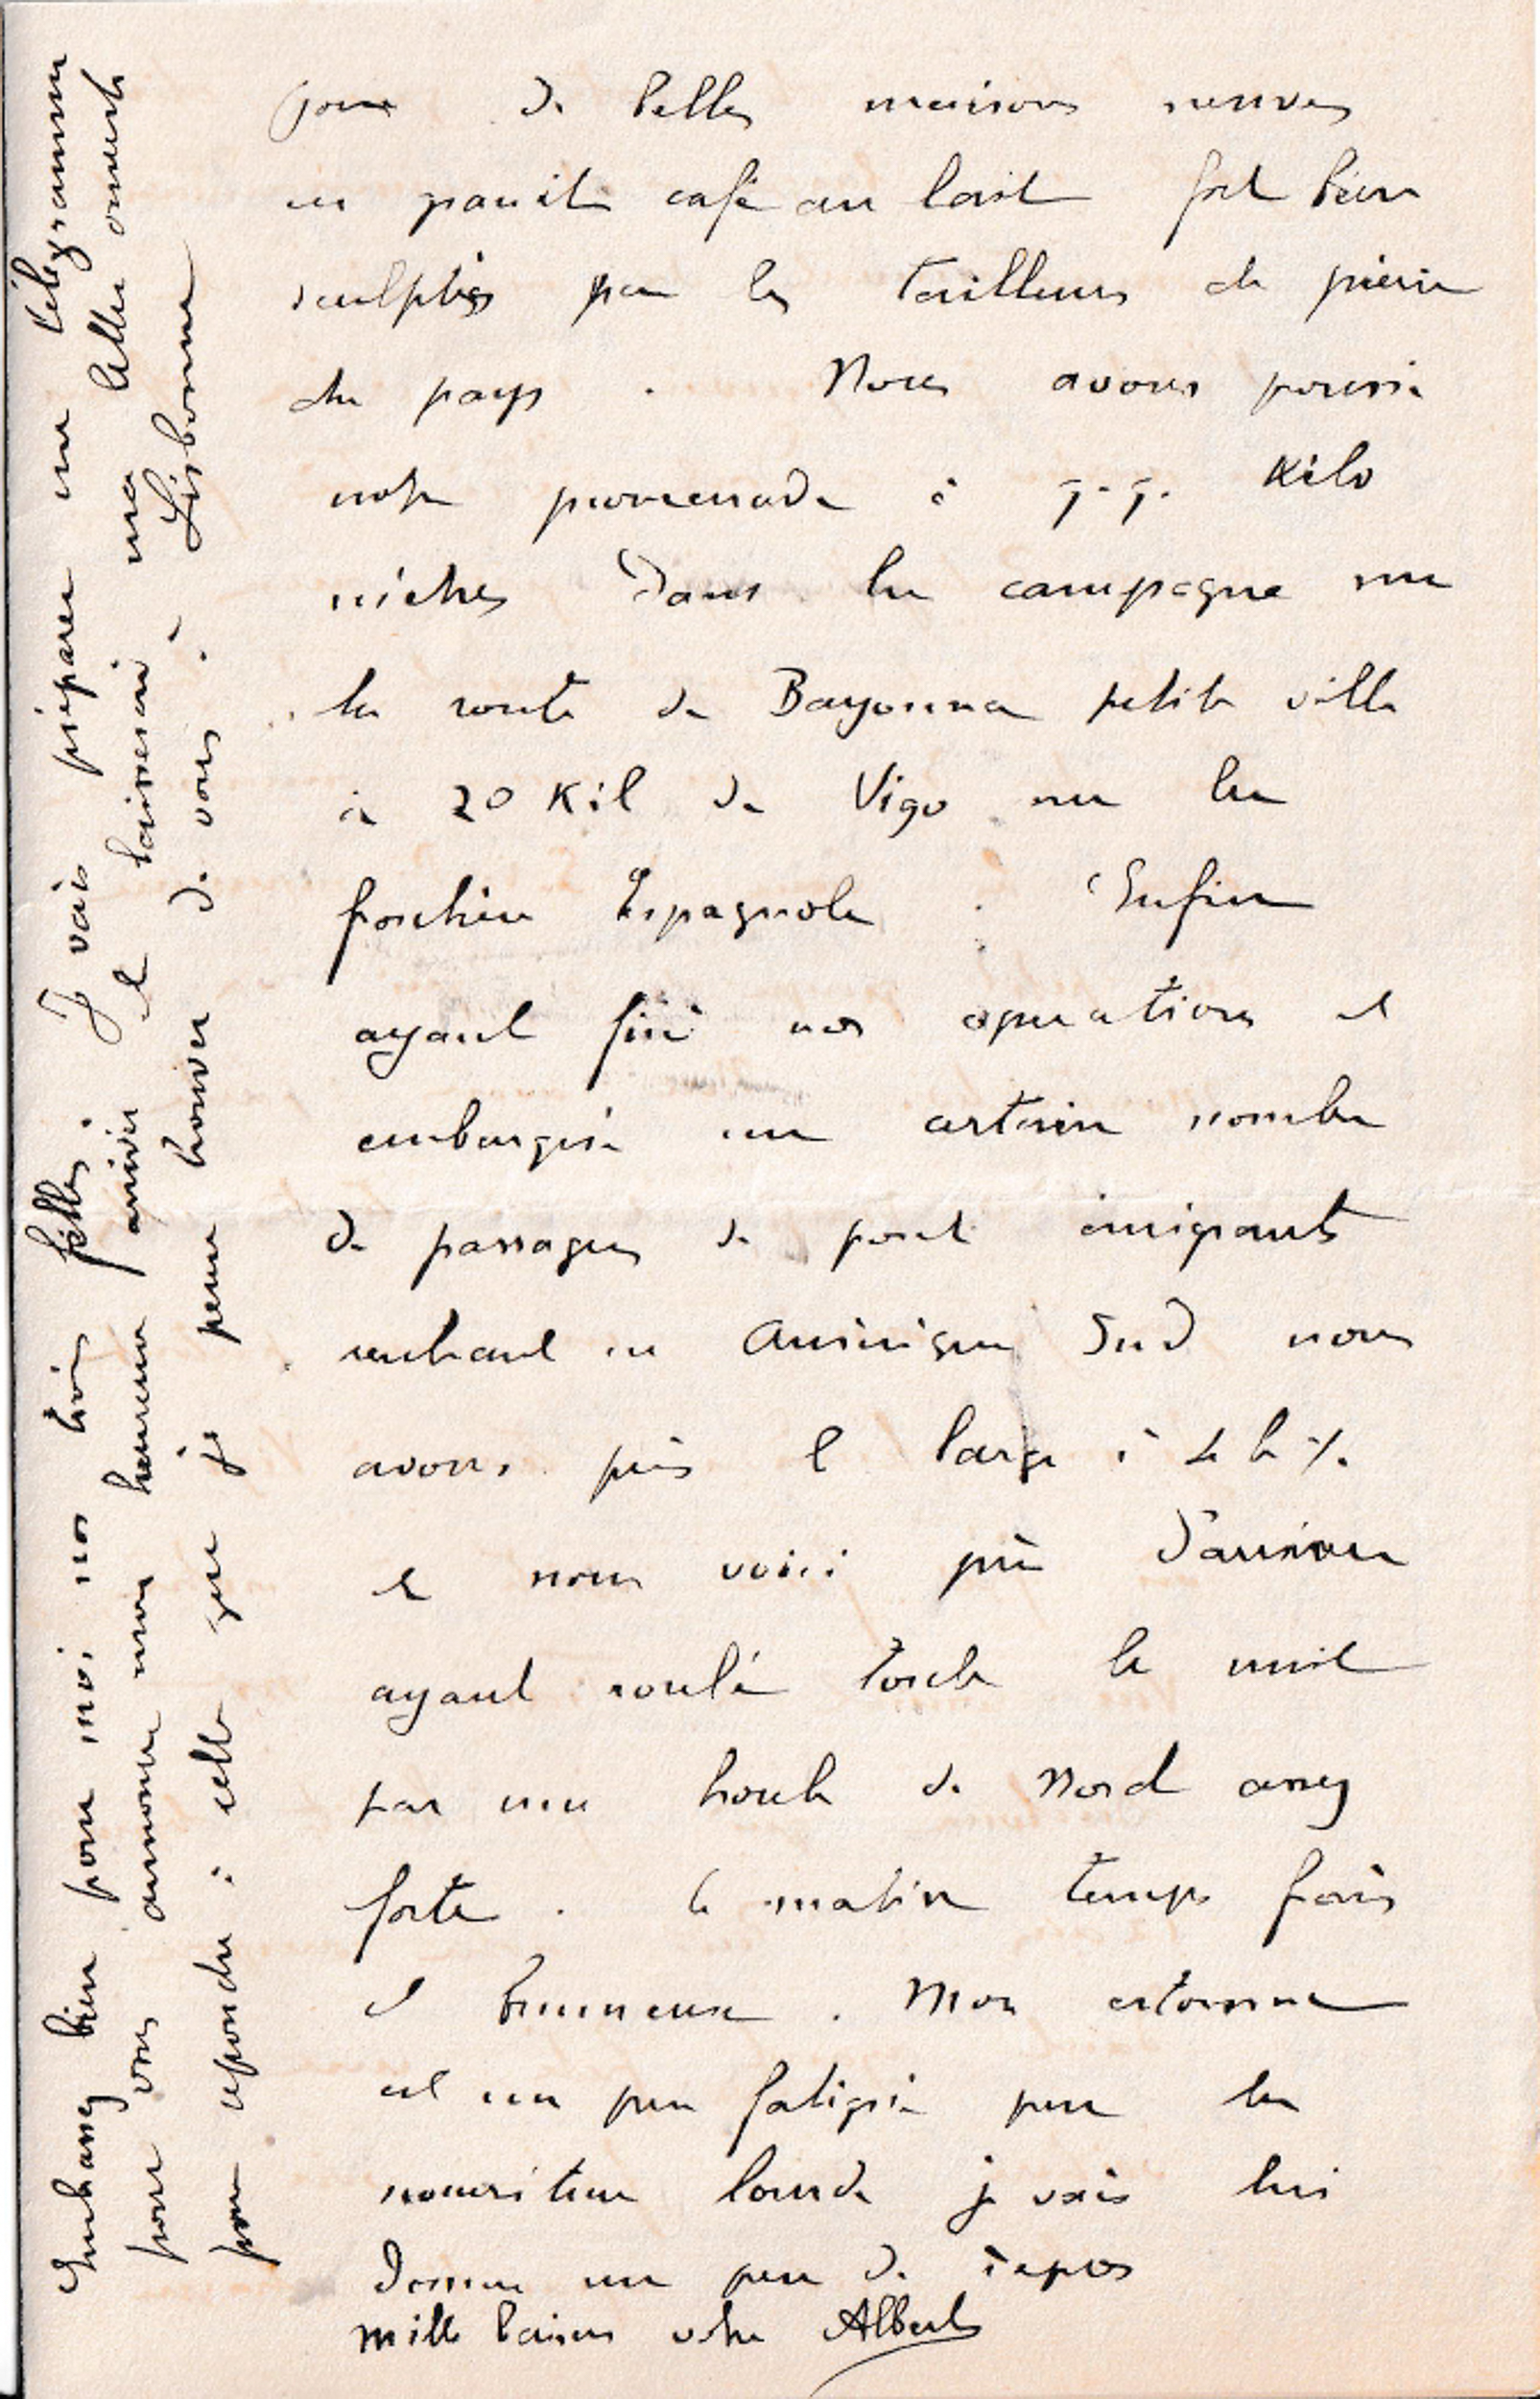 jour de belles maisons neuves
en granit café au lait fort bien
sculptées par les tailleurs de pierre
du pays. Nous avons poussé
notre promenade à q.q. Kilo
mètres dans la campagne sur
la route de Bayonna petite ville
à 20 Kil de Vigo sur la
frontière Espagnole. Enfin
ayant fini nos operations et
embarqué un certain nombre
de passagers de pont émigrants
rentrant en Amérique Sud nous
avons pris le large à 4 h ½
et nous voici près d'arriver
ayant roulé toute la nuit
par une houle de Nord assez
forte. Ce matin temps frais
et brumeux. Mon estomac
est un peu fatigué par la
nourriture lourde je vais lui
donner un peu de repos
mille baisers votre Albert
Embrassez bien pour moi nos trois filles. Je vais préparer un télégramme
pour vous annoncer mon heureuse arrivée et laisserai ma lettre ouverte
pour repondre à celle que je peux trouver de vous à Lisbonne